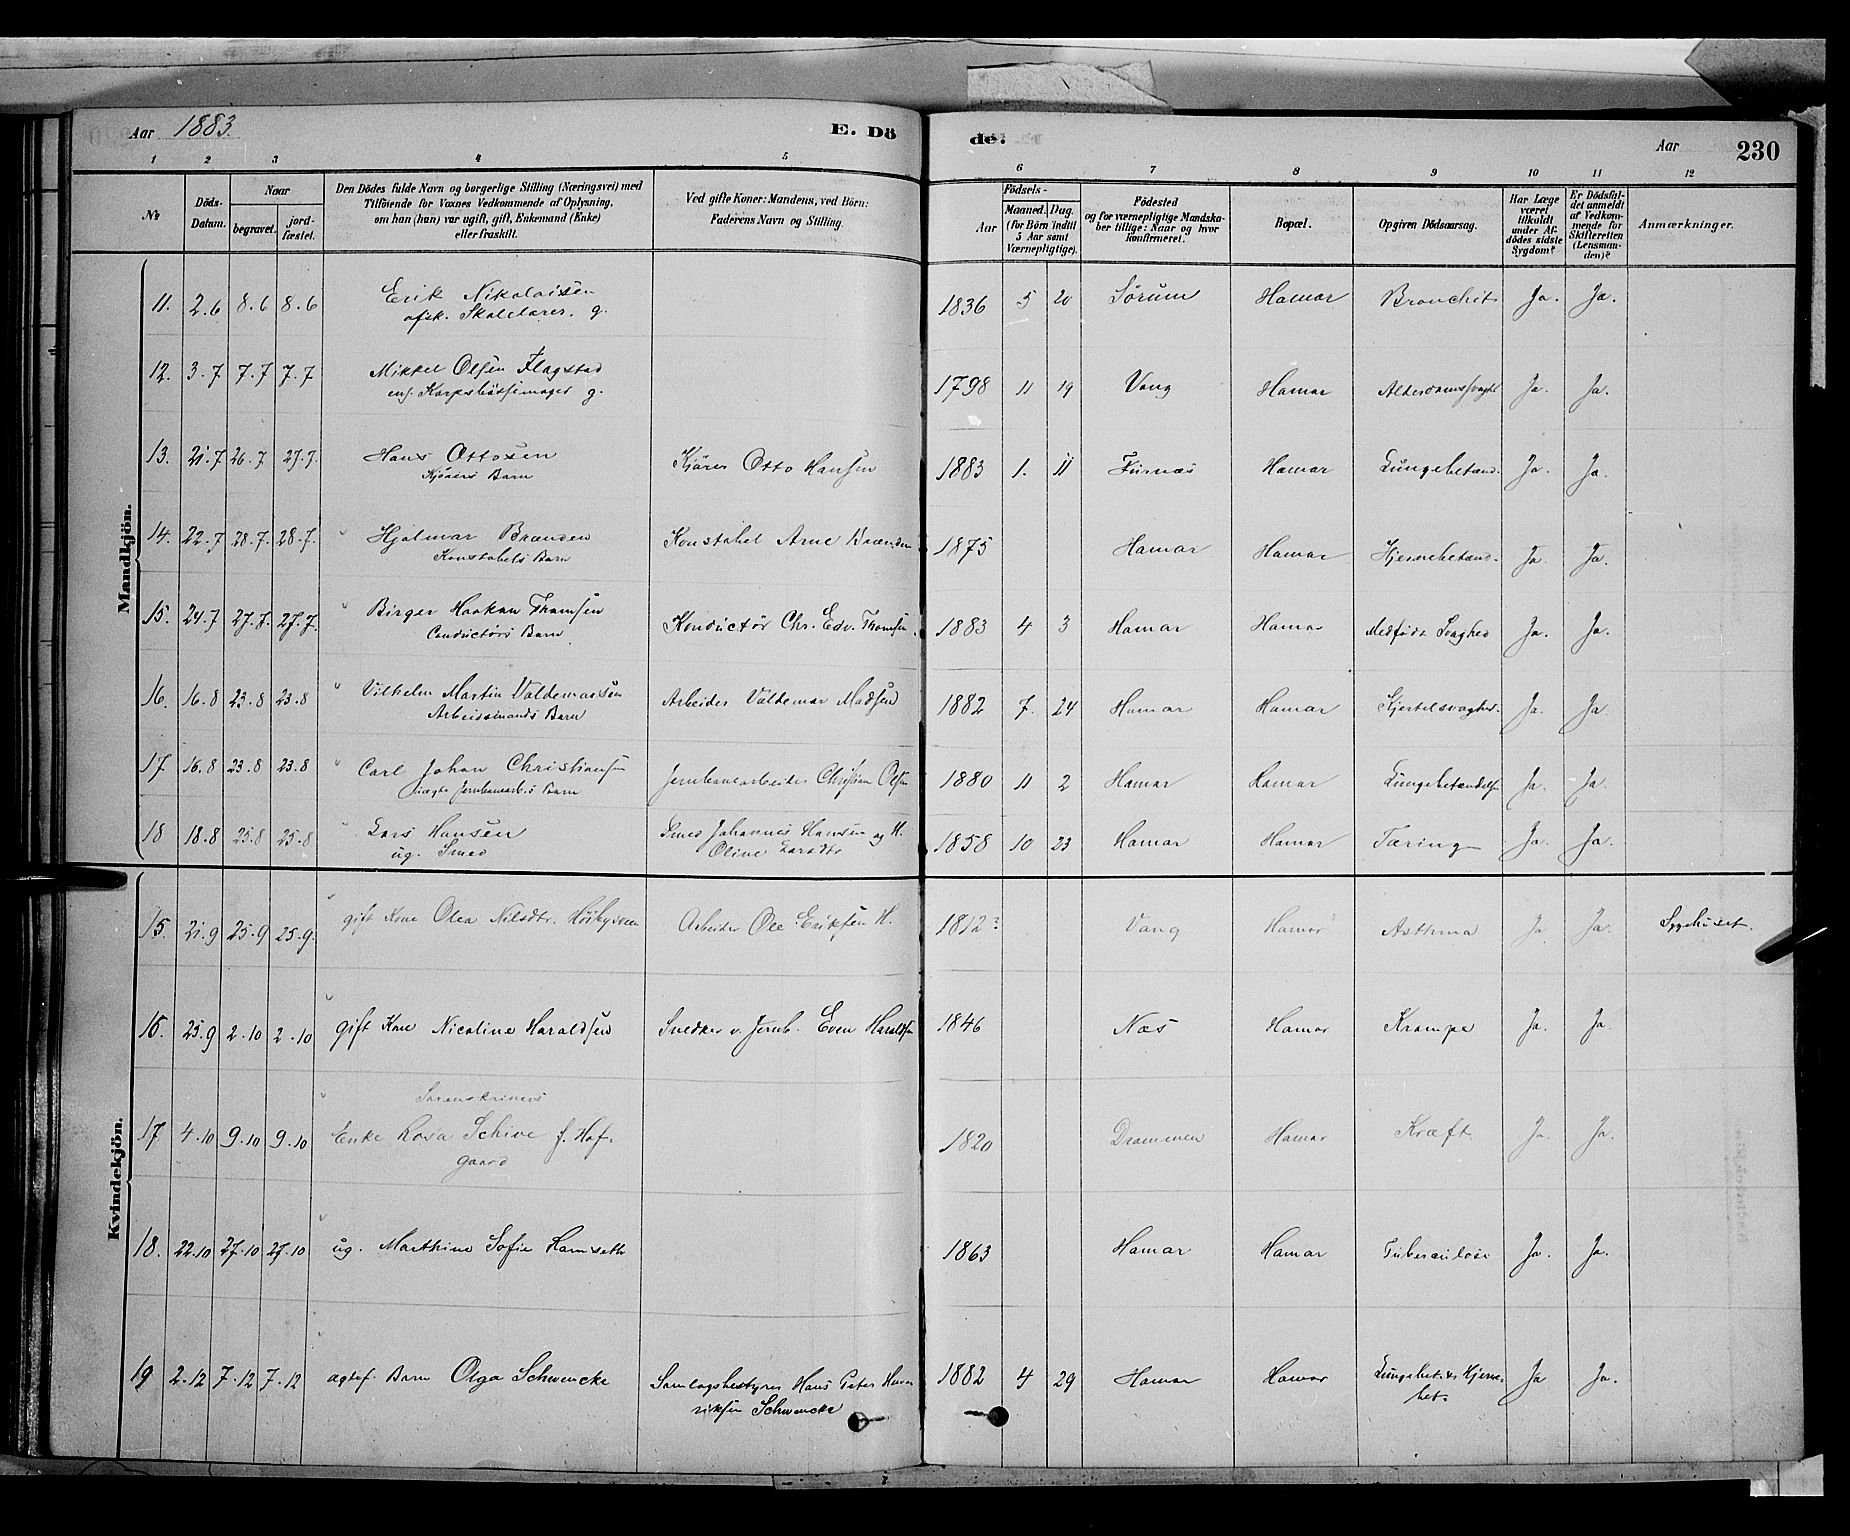 Aar 1883. E. Dö de. Aar 230
1 2 3 4 5 6 7 8 9 10 11 12
No
Döds-Datum.
Naar
begravet.
jord-fæstet.
Den Dödes fulde Navn og borgerlige Stilling (Næringsvei) med
Tilföiende for Voxnes Vedkommende af Oplysning,
om han (hun) var ugift, gift, Enkemand (Enke)
eller fraskilt.
Ved gifte Koner: Mandens, ved Börn:
Faderens Navn og Stilling.
Födsels-
Aar
Maaned. Dag.
(for Börn indtil
5 Aar samt
Værnepligtige).
Födested
og for værnepligtige Mandska-
ber tillige: Naar og hvor
konfirmeret.
Bopæl.
Opgiven Dödsaarsag.
Har Læge
været
tilkaldt
under Af-
dödes sidste
Sygdom?
Er Dödsfal-
det anmeldt
af Vedkom-
mende for
Skifteretten
(Lensman-
den)?
Anmærkninger.
Mandkjön.
11. 2.6 8.6 8.6 Erik Nikolaisen 1836 5 20 Sørum Hamar Bronchit Ja. Ja.
afsk. Skolelærer. g.
12. 3.7 7.7 7.7 Mikkel Olsen Flagstad 1798 11 19 Vang Hamar Alderdomssvaghd Ja. Ja.
Korpsbøssemager g.
13. 21.7 26.7 27.7. Hans Ottosen Kjører Otto Hansen 1883 1. 11 Furnæs Hamar Lungebetænd. Ja. Ja.
Kjørers Barn
14. 22.7 28.7. 28.7. Hjalmar Brænden Konstabel Arne Brænden 1875 Hamar Hamar Hjernebetænd. Ja. Ja.
Konstabels Barn
15. 24.7 27.7. 27.7. Birger Haakon Thomsen Konductør Chr. Edv. Thomsen. 1883 4 3 Hamar Hamar Medfødt Svaghed Ja. Ja.
Conductørs Barn
16. 16.8 23.8 23.8 Vilhelm Martin Valdemarsen Arbeider Valdemar Madsen 1882 7. 24 Hamar Hamar Kjertelsvaghed. Ja. Ja
Arbeidsmands Barn
17 16.8 23.8 23.8 Carl Johan Christiansen Jernbanearbeider Christian Olsen 1880 11 2 Hamar Hamar Lungebetændelse Ja. Ja.
uægte Jernbanearb.s Barn
18 18.8 25.8 25.8 Lars Hansen Smed Johannes Hansen og H. 1858 10 23 Hamar Hamar Tæring Ja. Ja.
ug. Smed Oline Larsdtr
Kvindekjön.
15. 21.9 25.9 25.9. gift Kone Olea Nilsdtr. Arbeider Ole Eriksen H. 1812? Vang Hamar Asthma Ja Ja. Sygehuset.
16. 25.9 2.10 2.10 gift Kone Nicoline Haraldsen Snedker v. Jernb. Even Haraldsen 1846 Næs Hamar Krampe Ja. Ja.
Sorenskrivers
17 4.10 9.10 9.10 Enke Rosa Schive f. Hof- 1820 Drammen Hamar Kræft. Ja. Ja.
gaard
18. 22.10 27.10 27.10 ug. Marthine Sofie Hamseth 1863 Hamar Hamar Tuberculose Ja. Ja.
19 2.12 7.12 7.12 ægtef. Barn Olga Schwencke Samlagsbestyrer Hans Peter Hen- 1882 4 29 Hamar Hamar Lungebet. & Hjerne- Ja Ja.
riksen Schwencke bet.